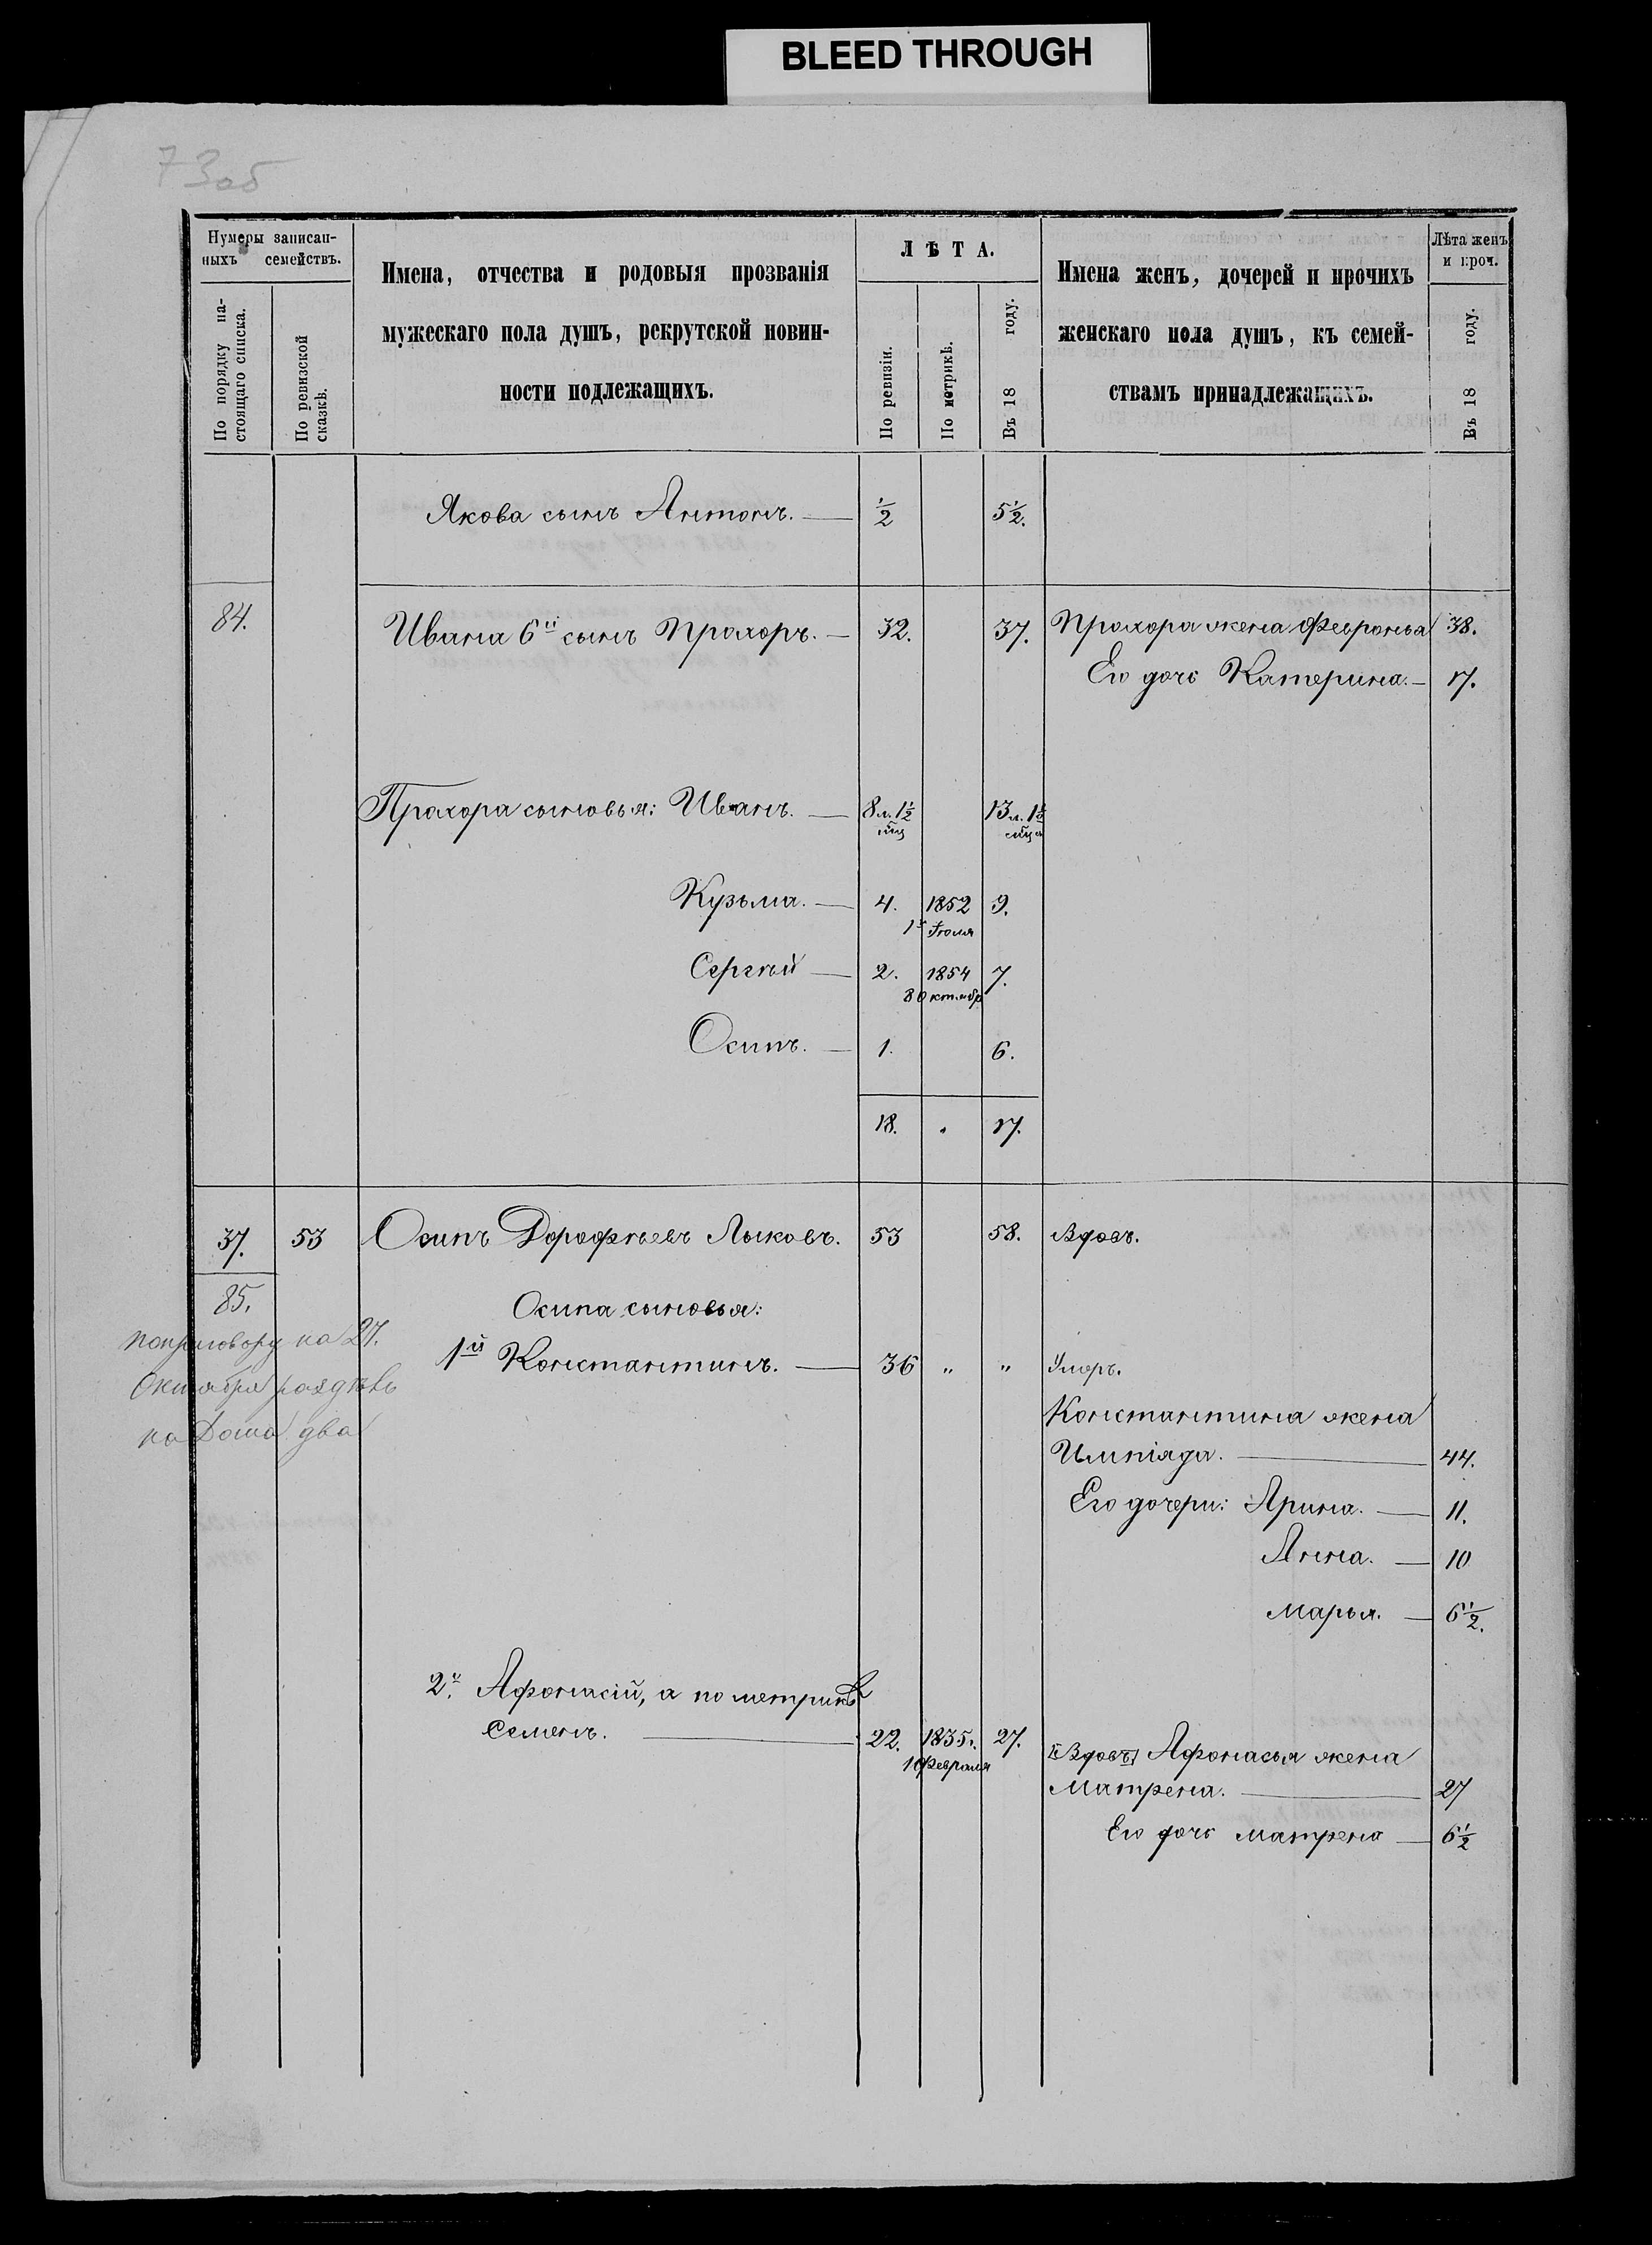 BLEED THROUGH
73об
Нумеры записан-
ныхъ семействъ.
По порядку на-
стоящаго списка.
По ревизской
сказкѣ.
Имена, отчества и родовыя прозванія
мужескаго пола душъ, рекрутской повин-
ности подлежащихъ.
ЛѢТА.
По ревизіи.
По метрикѣ.
Въ 18 году.
Имена женъ, дочерей и прочихъ
женскаго пола душъ, къ семей-
ствамъ принадлежащихъ.
Лѣта женъ
и проч.
Въ 18 году.
Якова сынъ Антонъ. — ½ 5½.
84. Ивана 6й сынъ Прохоръ. — 32. 37. Прохора жена Февронья 38.
Его дочь Катерина. — 17.
Прохора сыновья: Иванъ. — 8 л. 1½ 13 л. 1½
мц мца
Кузьма. — 4. 1852 9.
1го Іюля
Сергѣй — 2. 1854 7.
8 Октябр
Осипъ. — 1. 6.
18. „ 17.
37. 53 Осипъ Дорофѣевъ Лыковъ. 53 58. Вдовъ.
85.
Осипа сыновья:
по приговору на 27.
Октября раздѣлъ
на Дома два
1й Константинъ. — 36 „ „ Умеръ.
Константина жена
Импіяда. — 44.
Его дочери: Арина. — 11.
Анна. — 10
Марья. — 6½.
2й Афонасій, а по метрикѣ
Семенъ. — 22. 1835 г. 27.
1 Февраля
[Вдовъ] Афонасья жена
Матрена. — 27
Его дочь Матрена — 6½